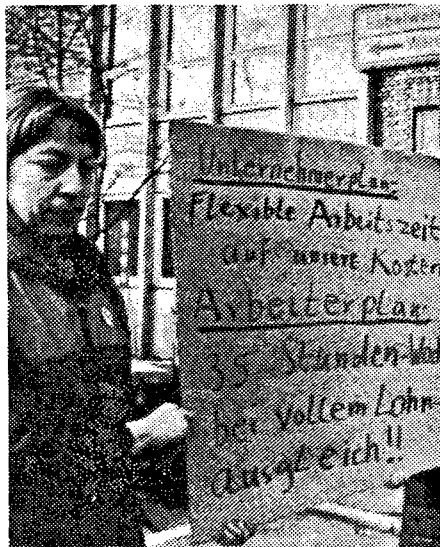 Unternehmerplan:
Flexible Arbeitszeit
auf unsere Kosten
Arbeiterplan:
35 Stunden-Wo
bei vollem Lohn-
ausgleich!!